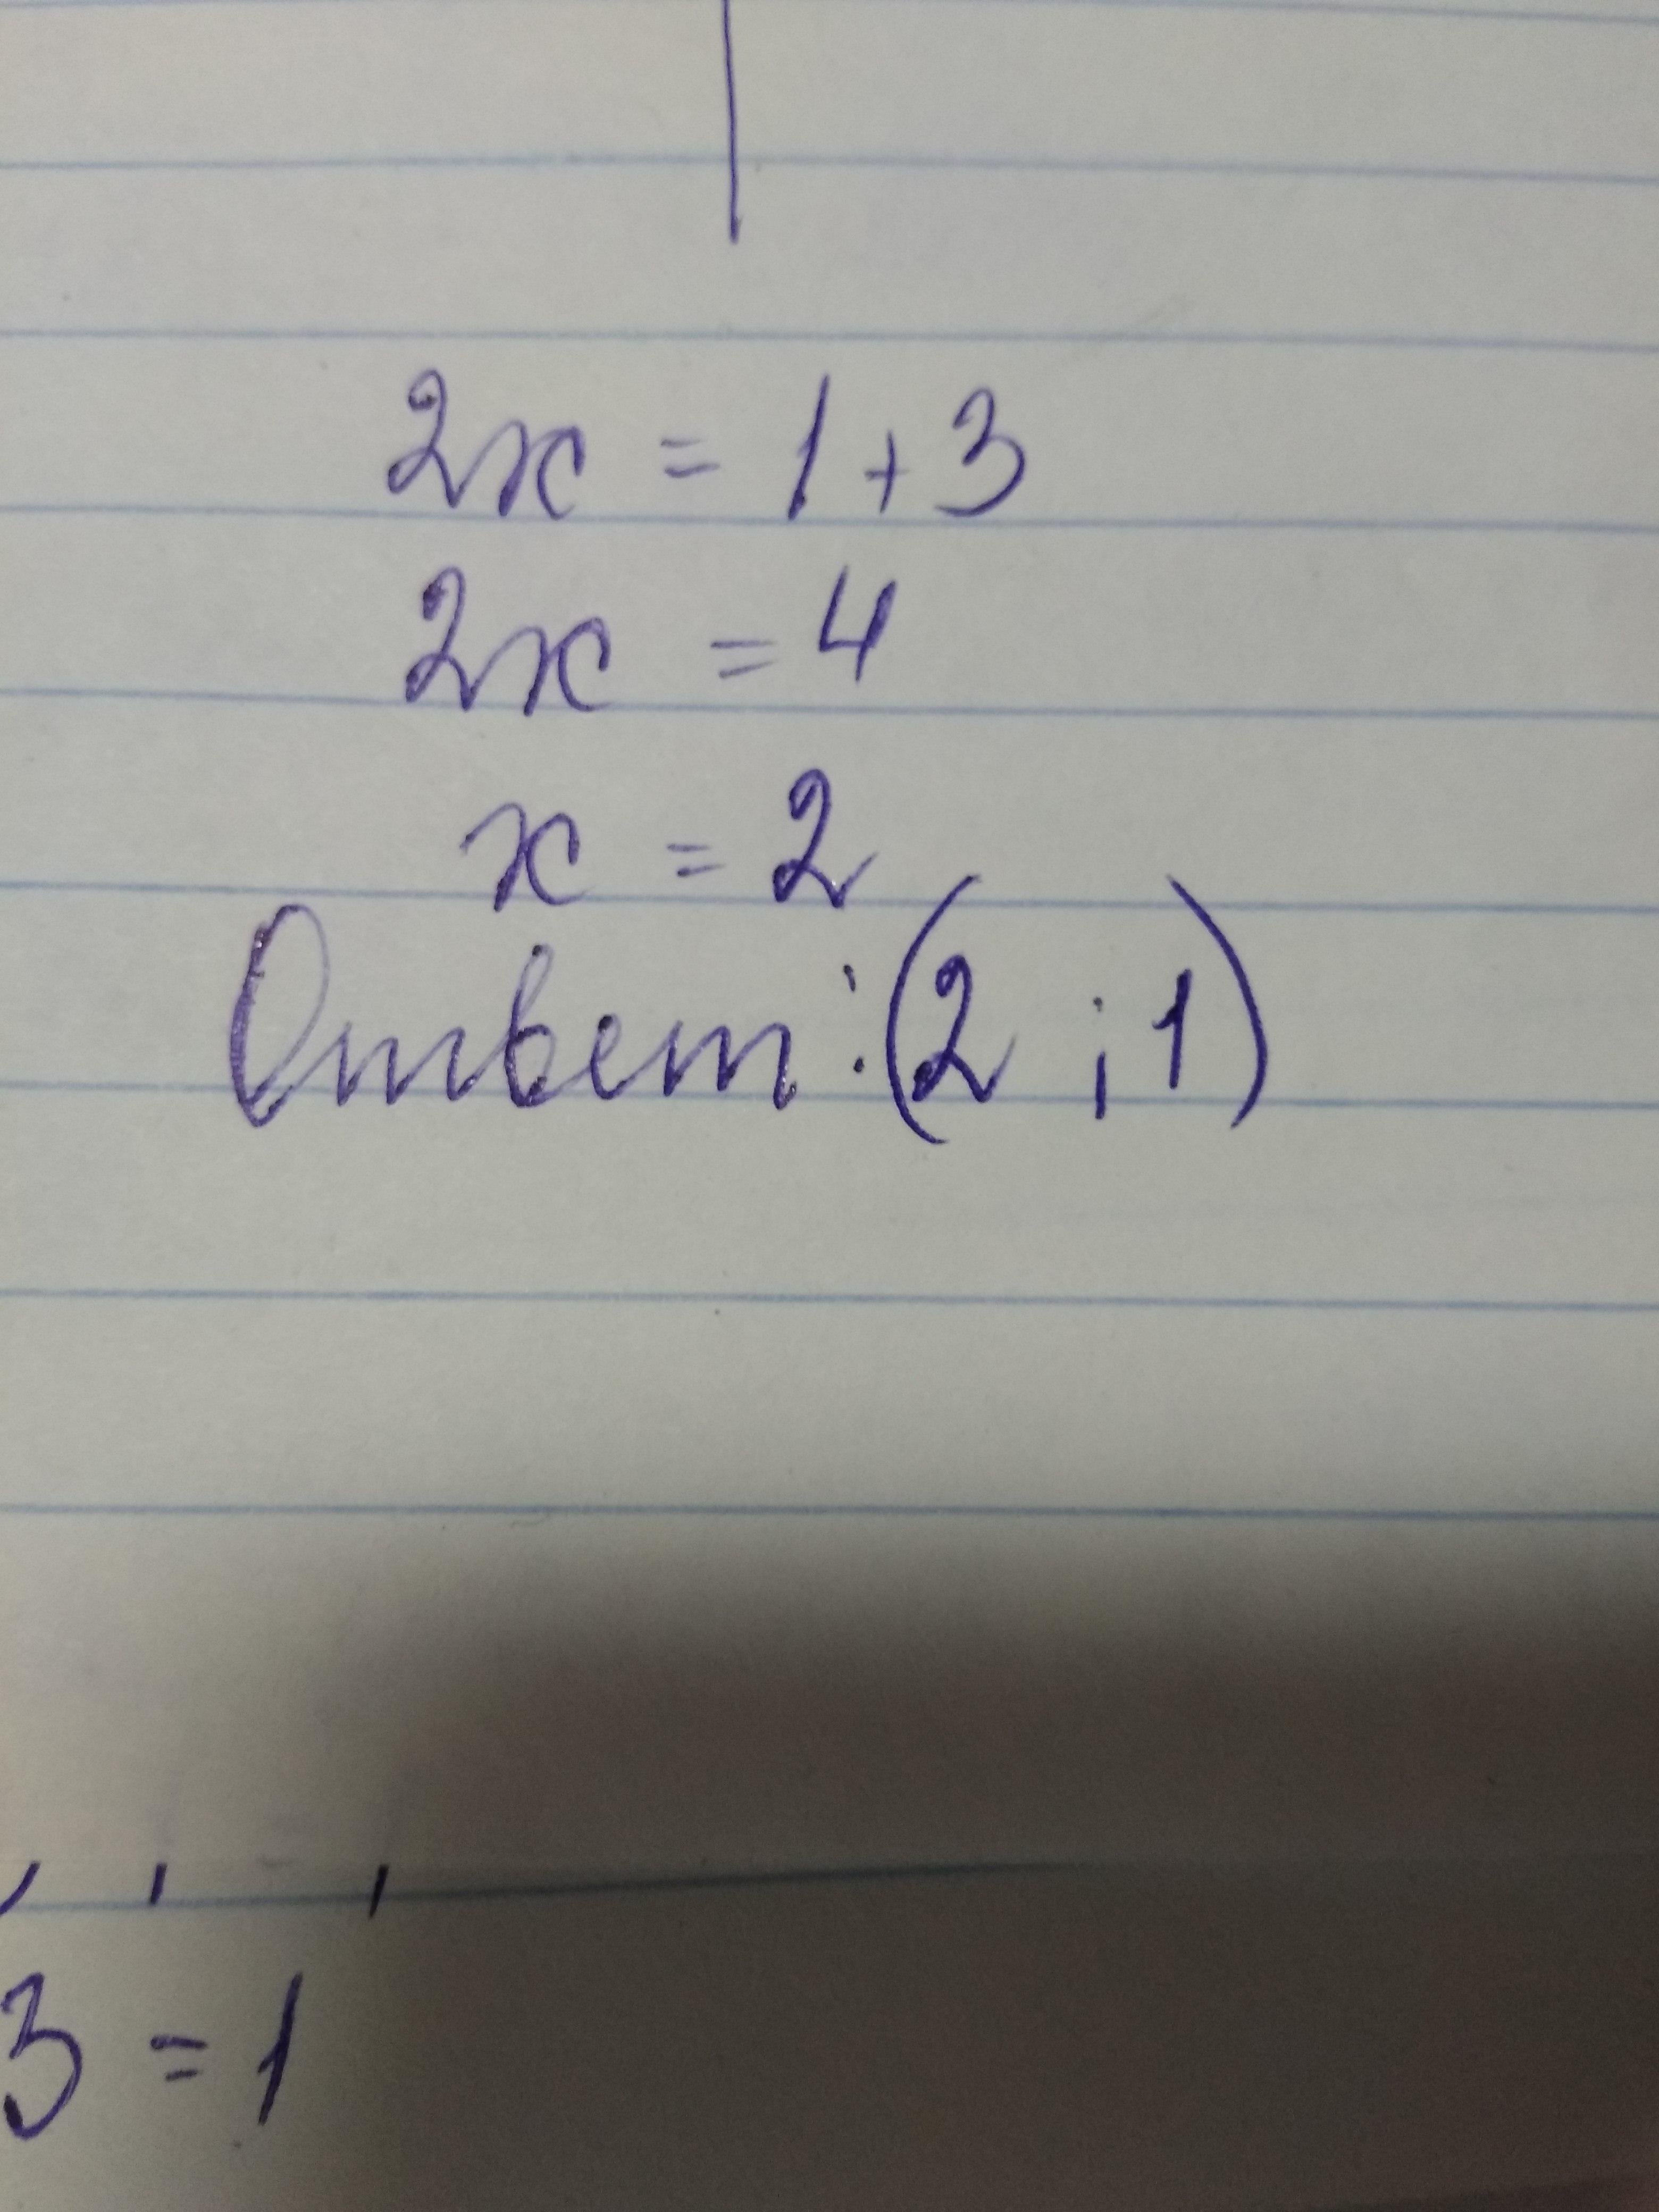 2x = 1 + 3
2x = 4
x = 2
Ответ: (2 ; 1)
3 = 1